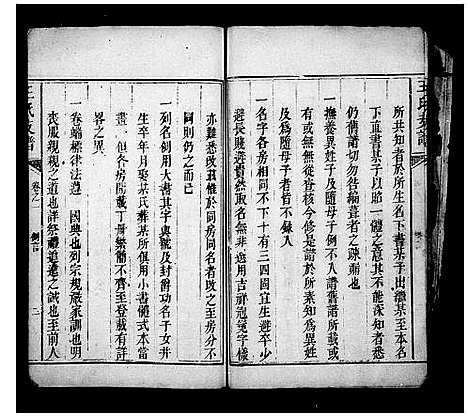 王氏支譜
所共知者于所生名下書某子出繼某至本名
下直書某子以貽一體之意其不能深知者悉
仍舊譜切勿咎編葺者之疎漏也
一撫養異姓子及隨母子例不入譜舊譜所載或
有無心無從查核今修是譜於所素知為異姓
子及隨母子者皆不錄入
一名字各房相同不下十有三四固宜生避卒少
避長賤避貴然取名無非選用吉祥冠冕字樣
亦難悉改茲惟於同房同名者改之至房分不
同則仍之而已
一名例用大書其字與號及封爵功名子女并
生卒年月娶某氏葬某所俱用小書儱式本當
畫一但各房原載丁冊繁簡不齊至登載有詳
畧之異
一卷端標律法遵 國典也列宗規嚴家訓也明
喪服親親之道也詳祭禮追遠之誠也至前人
王氏支譜
卷之一
例言
二